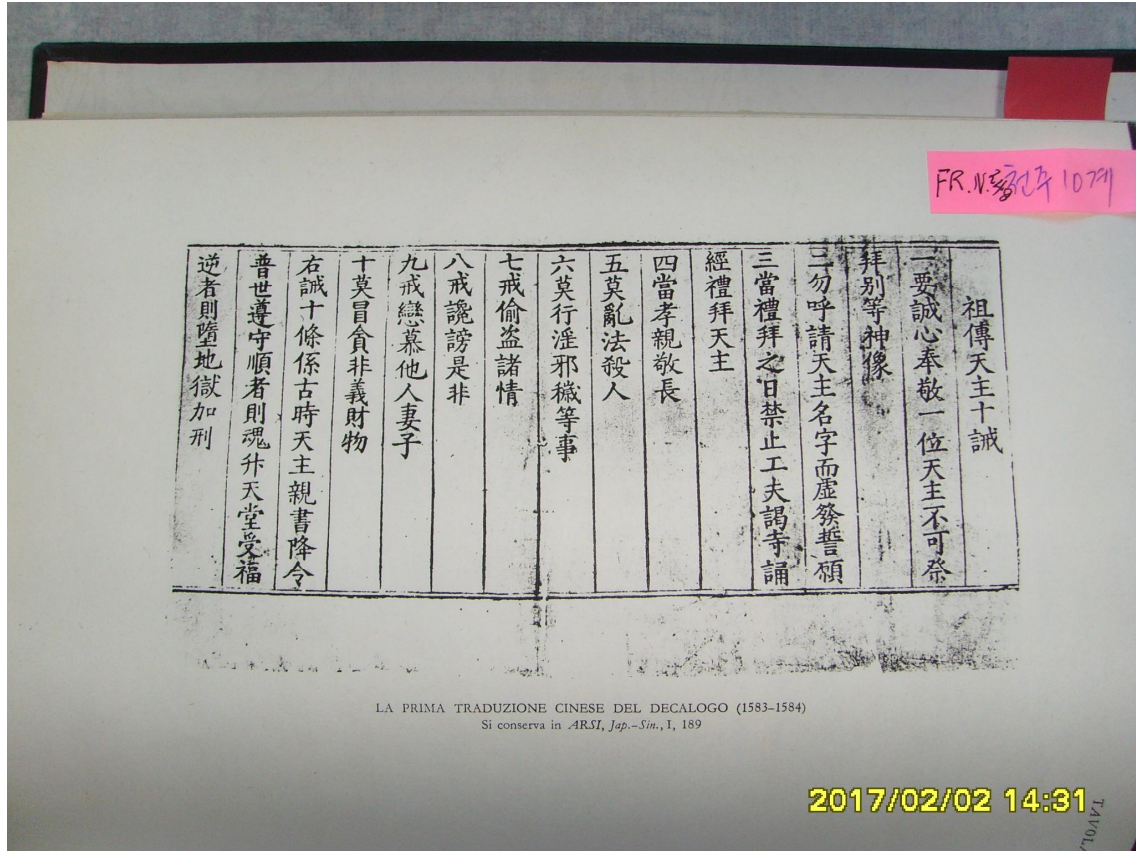 FR.N. 천주 10계
祖傳天主十誡
一要誠心奉敬一位天主不可祭
拜別等神像
二勿呼請天主名字而虛發誓願
三當禮拜之日禁止工夫謁寺誦
經禮拜天主
四當孝親敬長
五莫亂法殺人
六莫行淫邪穢等事
七戒偷盗諸情
八戒讒謗是非
九戒戀慕他人妻子
十莫冒貪非義財物
右誡十條係古時天主親書降令
普世遵守順者則魂升天堂受福
逆者則墮地獄加刑
LA PRIMA TRADUZIONE CINESE DEL DECALOGO (1583-1584)
Si conserva in ARSI, Jap.-Sin., I, 189
2017/02/02 14:31